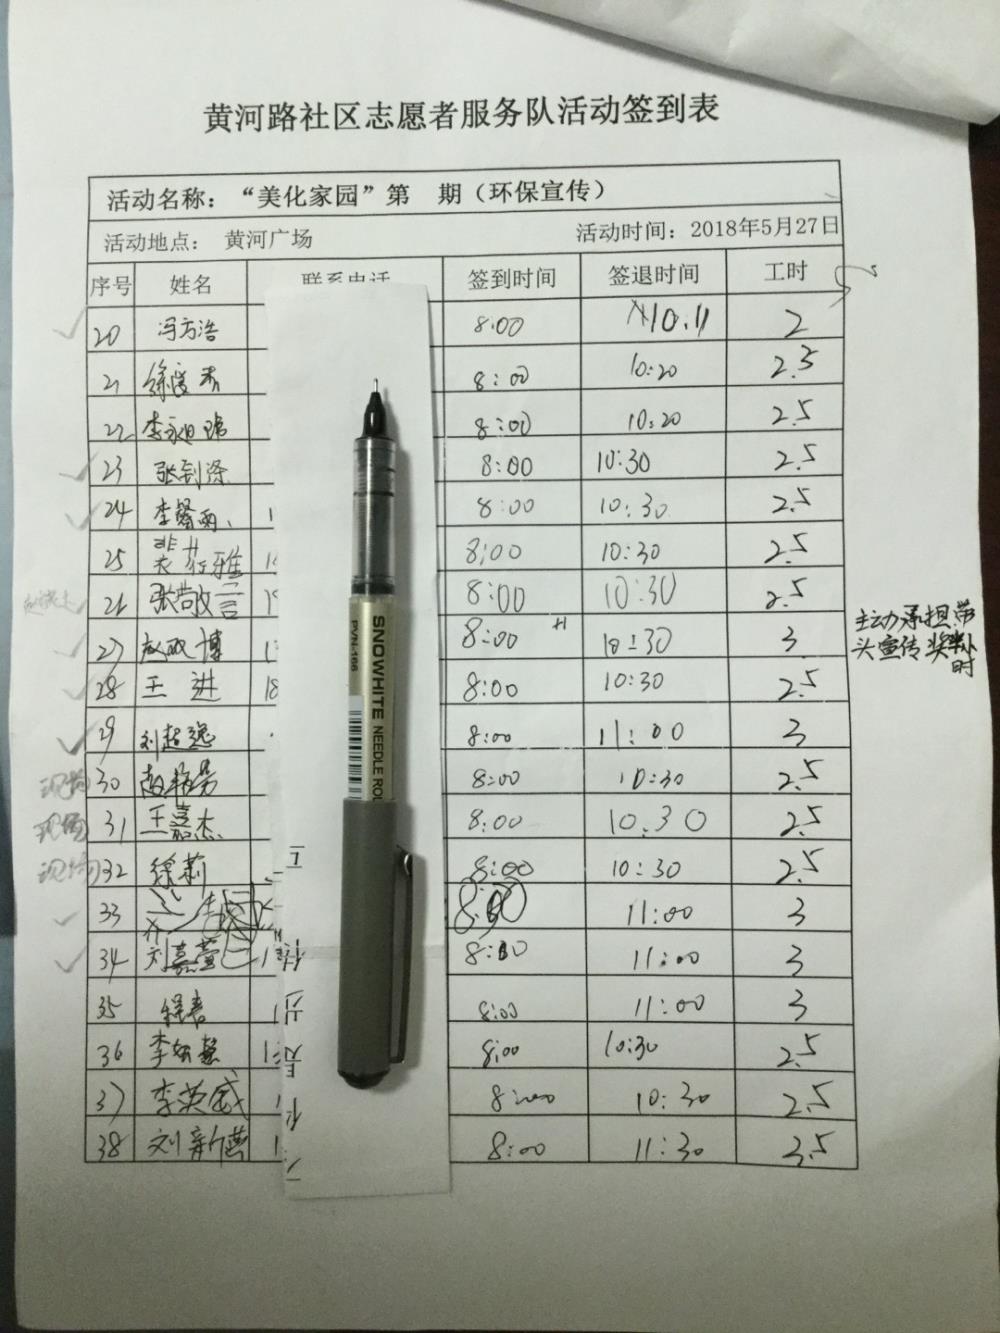 黄河路社区志愿者服务队活动签到表
活动名称：“美化家园”第 期（环保宣传）
活动地点： 黄河广场 活动时间：2018年5月27日
序号 姓名 联系电话 签到时间 签退时间 工时
20 冯方浩 8:00 10.11 2
21 8:00 10:20 2.5
22 8:00 10:20 2.5
23 张剑涤 8:00 10:30 2.5
24 李馨雨 8:00 10:30 2.5
25 8:00 10:30 2.5
8:00 10:30 2.5
27 赵政博 8:00 10:30 3 主动承担带
头宣传奖半小
时
28 王进 18 8:00 10:30 2.5
29 刘超逸 8:00 11:00 3
现场 30 8:00 10:30 2.5
现场 31 王嘉杰 8:00 10.30 2.5
现场 32 徐莉 8:00 10:30 2.5
33 11:00 3
34 刘嘉萱 8:00 11:00 3
35 8:00 11:00 3
36 李 8:00 10:30 2.5
37 李英威 8:00 10:30 2.5
38 刘新茜 8:00 11:30 3.5
SNOWHITE NEEDLE ROL
PVN-166